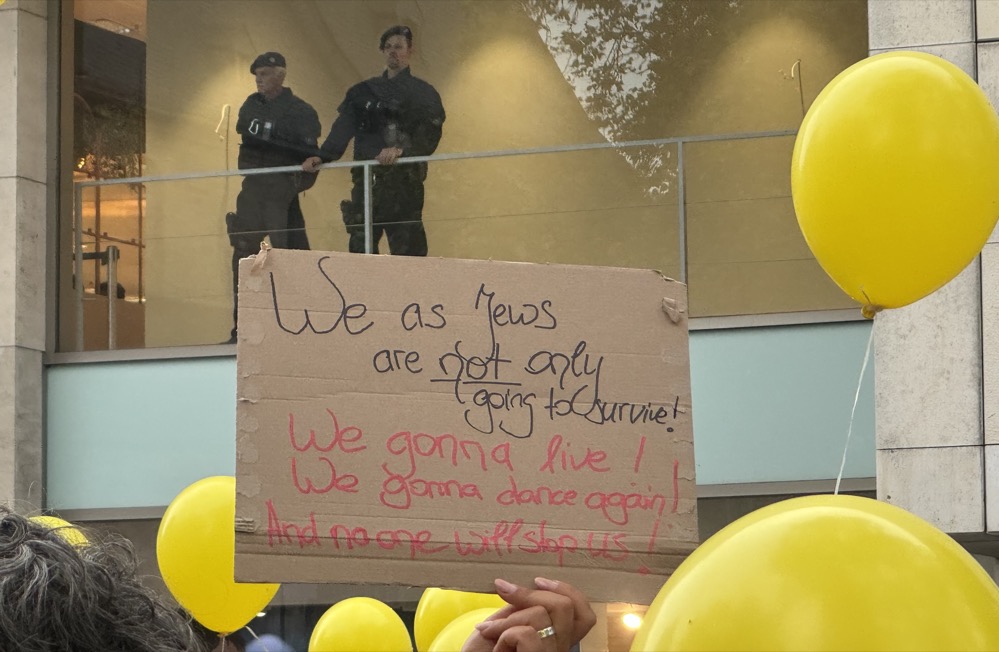 We as Jews
are not only
going to survive!
We gonna live!
We gonna dance again!
And no one will stop us!